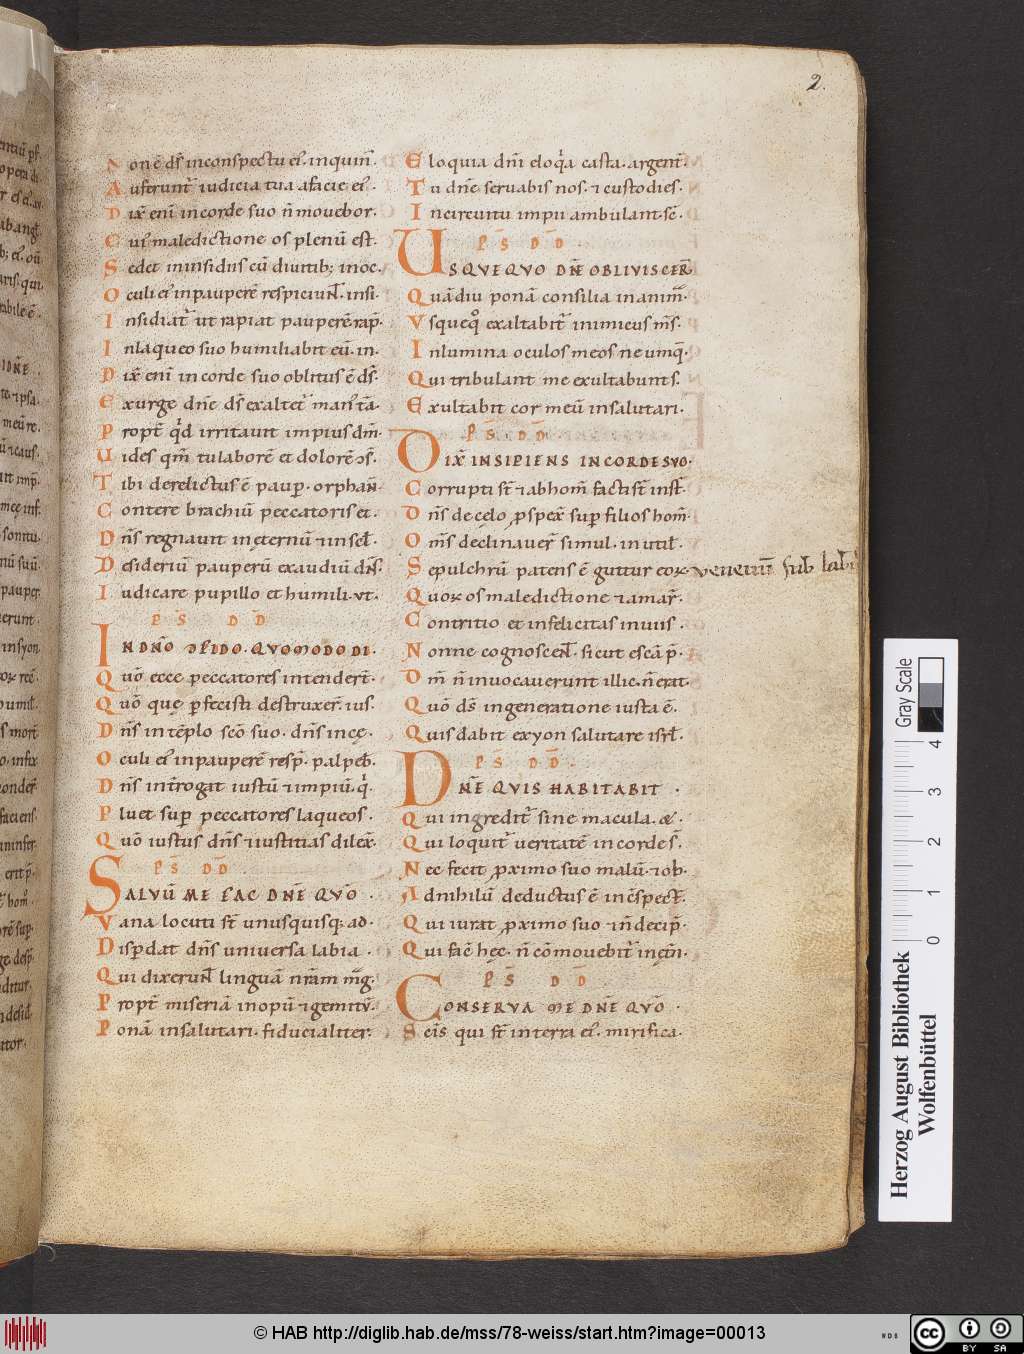 2.
Non ē ds̄ inconspectu ei'. inquin̄.
Auferunt̄ iudicia tua afacie ei'.
Dix̄ enī incorde suo n̄ mouebor.
Cui' maledictione os plenū est.
Sedet ininsidiis cū diuitib; inoc.
Oculi ei' inpauperē respiciunt. insi.
Insidiat̄ ut rapiat pauperē rap̄.
Inlaqueo suo humiliabit eū. in.
Dix̄ enī in corde suo oblitus ē ds̄.
Exurge dn̄e ds̄ exaltet̄ man' tā.
Propt̄ qd irritauit impius dm̄.
Uides qm̄ tu laborē et dolorē ↄs̄.
Tibi derelictus ē paup̄. orphan̄.
Contere brachiū peccatoris et.
Dn̄s regnauit inęternū ⁊ insc̄l.
Desideriū pauperū exaudiū dn̄s.
Iudicare pupillo et humili. vt.
PS̄ DD̄
IN DN̄O 
 QVOMODO DI.
Quō ecce peccatores intendert̄.
Quō que p̄fecisti destruxer̄. ius.
Dn̄s in tēplo sc̄o suo. dn̄s incę.
Oculi ei' inpauperē resp̄. palpeb̄.
Dn̄s int̄rogat iustū ⁊ impiū. q.
Pluet sup̄ peccatores laqueos.
Quō iustus dn̄s ⁊ iustitias dilex̄.
PS̄ DD̄
SALVŪ ME FAC DN̄E QVŌ
Vana locuti st̄ unusquisq; ad.
Disp̄dat dn̄s uniuersa labia.
Qui dixerunt linguā nr̄am mg̃.
Propt̄ miseriā inopū ⁊ gemitū.
Ponā insalutari. fiducialiter.
Eloquia dn̄i eloqa casta. argent̄.
Tu dn̄e seruabis nos. ⁊ custodies.
Incircuitu impii ambulant. sc̄.
PS̄ DD̄
USQVEQVO DN̄E OBLIVISCER̄
Quādiu ponā consilia inanim̄.
Vsqueq° exaltabit̄ inimicus m̄s.
Inlumina oculos meos ne umq̄.
Qui tribulant me exultabunt s.
Exultabit cor meū insalutari.
PS̄ DD̄
DIX̄ INSIPIENS INCORDE SVO.
Corrupti st̄ ⁊ abhom̄ facti st̄ inst̄.
Dn̄s de cęlo p̄spex̄ sup̄ filios hom̄.
Om̄s declinauer̄ simul. inutil̄.
Sepulchrū patens ē guttur eoꝝ venenū sub labi
Quoꝝ os maledictione ⁊ amar̄.
Contritio et infelicitas inuiis.
Nonne cognoscent. sicut escā p̄.
Dm̄ n̄ inuocauerunt illic. n̄ erat.
Quō ds̄ ingeneratione iusta ē.
Quis dabit exyon salutare isrl̄.
PS̄ DD̄.
DN̄E QVIS HABITABIT.
Qui ingredit̄ sine macula. &.
Qui loquit̄ ueritatē incorde s̄.
Nec fecit p̄ximo suo malū ⁊ ob.
Adnihilū deductus ē incspect̄.
Qui iurat p̄ximo suo ⁊ n̄ decip̄.
Qui fac̄ hęc. n̄ cōmouebit̄ inęt̄n.
PS̄ DD̄
CONSERVA ME DN̄E QVŌ.
Sc̄is qui st̄ interra ei'. mirifica.
Gray Scale
0 1 2 3 4
Herzog August Bibliothek
Wolfenbüttel
© HAB http://diglib.hab.de/mss/78-weiss/start.htm?image=00013
cc BY SA